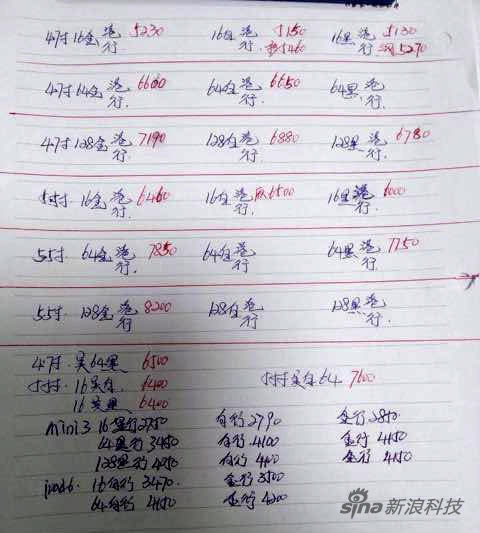 47寸16金港行 5230 16白港行 5150 16黑港行 5130
5460 5270
47寸64金港行 6600 64白港行 6650 64黑港行
47寸128金港行 7190 128白港行 6880 128黑港行 6780
16金港行 6460 16白港行 6500 16黑港行 6000
55寸 64金港行 7850 64白港行 64黑港行 7750
55寸 128金港行 8200 128白港行 128黑港行
47寸 美64黑 6500
16美白 6400 美白64 7600
16美黑 6400
mini3 16黑行 2750 白行 2790 金行 2850
64黑行 白行 4100 金行 4150
128黑行 白行 金行 4150
ipad6 16白行 3470 金行 3500
64白行 4150 金行 4200
sina新浪科技